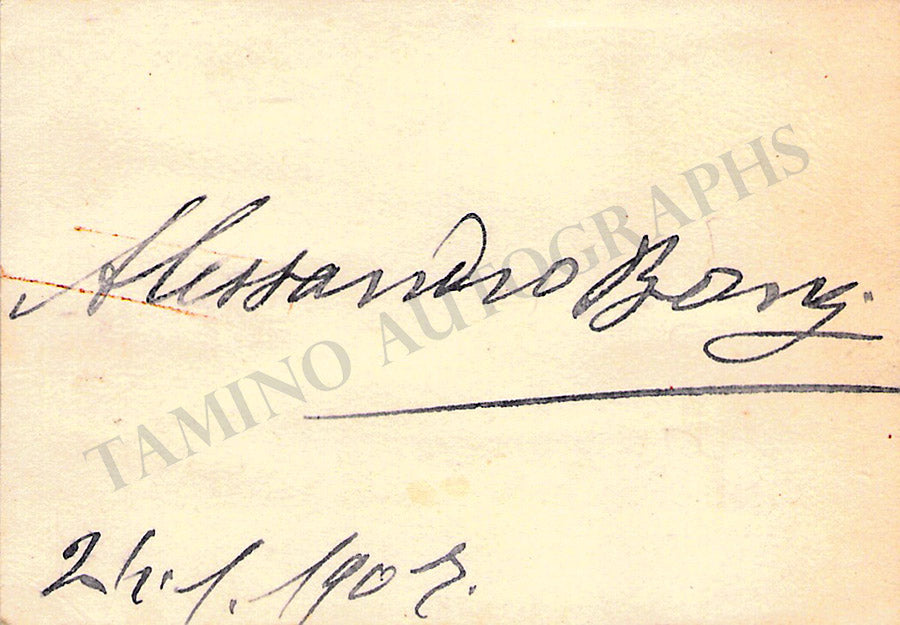 Alessandro Bonci
TAMINO AUTOGRAPHS
24.1.1907.